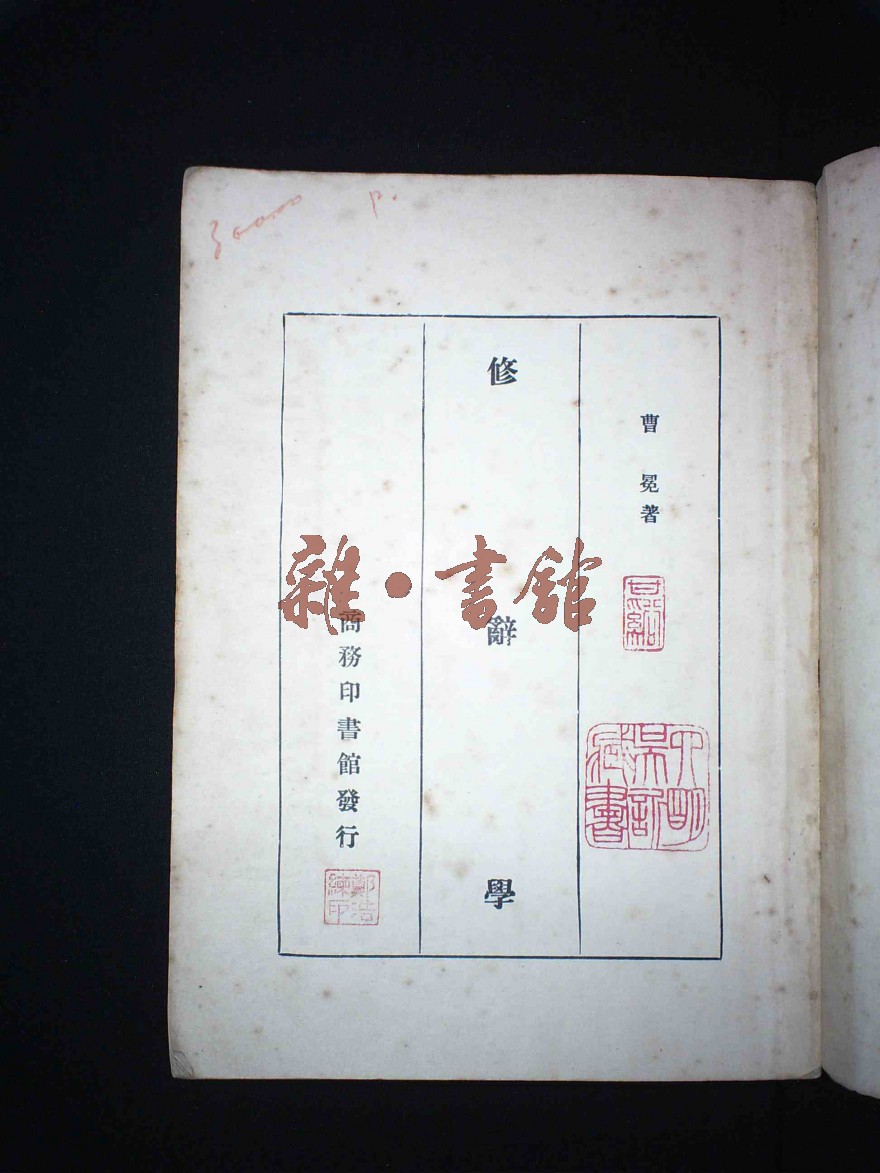 30000 p.
曹冕著
修辭學
商務印書館發行
鄭浩
練印
雜·書館